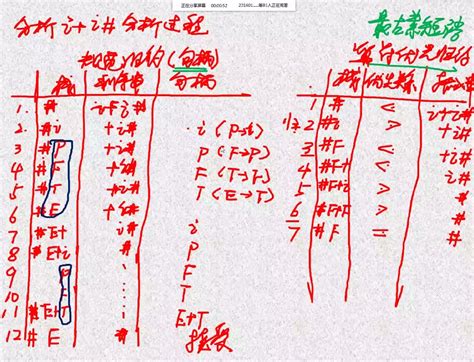 分析 i+i# 分析过程
规范归约(句柄)
最左素短语
算符优先归约
栈 剩余串 句柄
栈 优先关系 剩余串
1. # i+i#
2. #i +i# i (P→i)
3 #P +i# P (F→P)
4 #F +i# F (T→F)
5 #T +i# T (E→T)
6 #E +i#
7 #E+ i# i
8 #E+i # P
9 F
10 T
11 #E+T E+T
12 #E # 接受
1 # < i+i#
2 #i > +i#
3 #F < +i#
4 #F+ < i#
5 #F+i > #
6 #F+F > #
7 #F #